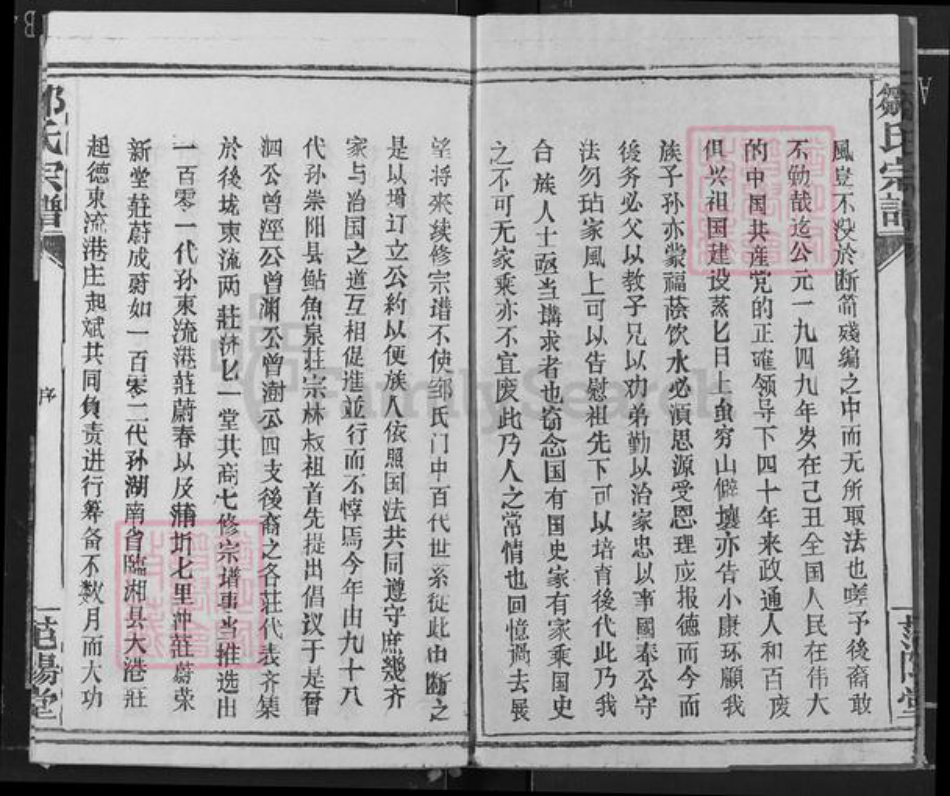 鄒氏宗譜
范陽堂
風豈不殁於断简殘編之中而无所取法也嗟予後裔敢
不勉哉迄公元一九四九年岁在己丑全国人民在伟大
的中国共産党的正確领导下四十年来政通人和百废
俱兴祖国建设蒸匕日上虽穷山僻壤亦告小康环顧我
族子孙亦蒙福蔭饮水必湏思源受恩理应报德而今而
後务必父以教子兄以劝弟勤以治家忠以事國奉公守
法勿玷家風上可以告慰祖先下可以培育後代此乃我
合族人士亟当講求者也窃念国有国史家有家乘国史
之不可无家乘亦不宜废此乃人之常情也回憶過去展
望将來续修宗谱不使邹氏门中百代世系從此由断之
是以增订立公約以便族人依照国法共同遵守庶幾齐
家与治国之道互相促進並行而不悖焉今年由九十八
代孙崇阳县鲇魚泉荘宗林叔祖首先提出倡议于是晉
泗公曾溼公曾渊公曾澍公四支後裔之各荘代表齐集
於後垅東流两荘济匕一堂共商七修宗谱事当推选出
一百零一代孙東流港荘蔚春以及蒲圻七里冲荘蔚荣
新堂荘蔚成蔚如一百零二代孙湖南省臨湘县大港荘
起德東流港庄起斌共同負责进行筹备不数月而大功
邹氏宗谱
序
范陽堂
FamilySearch